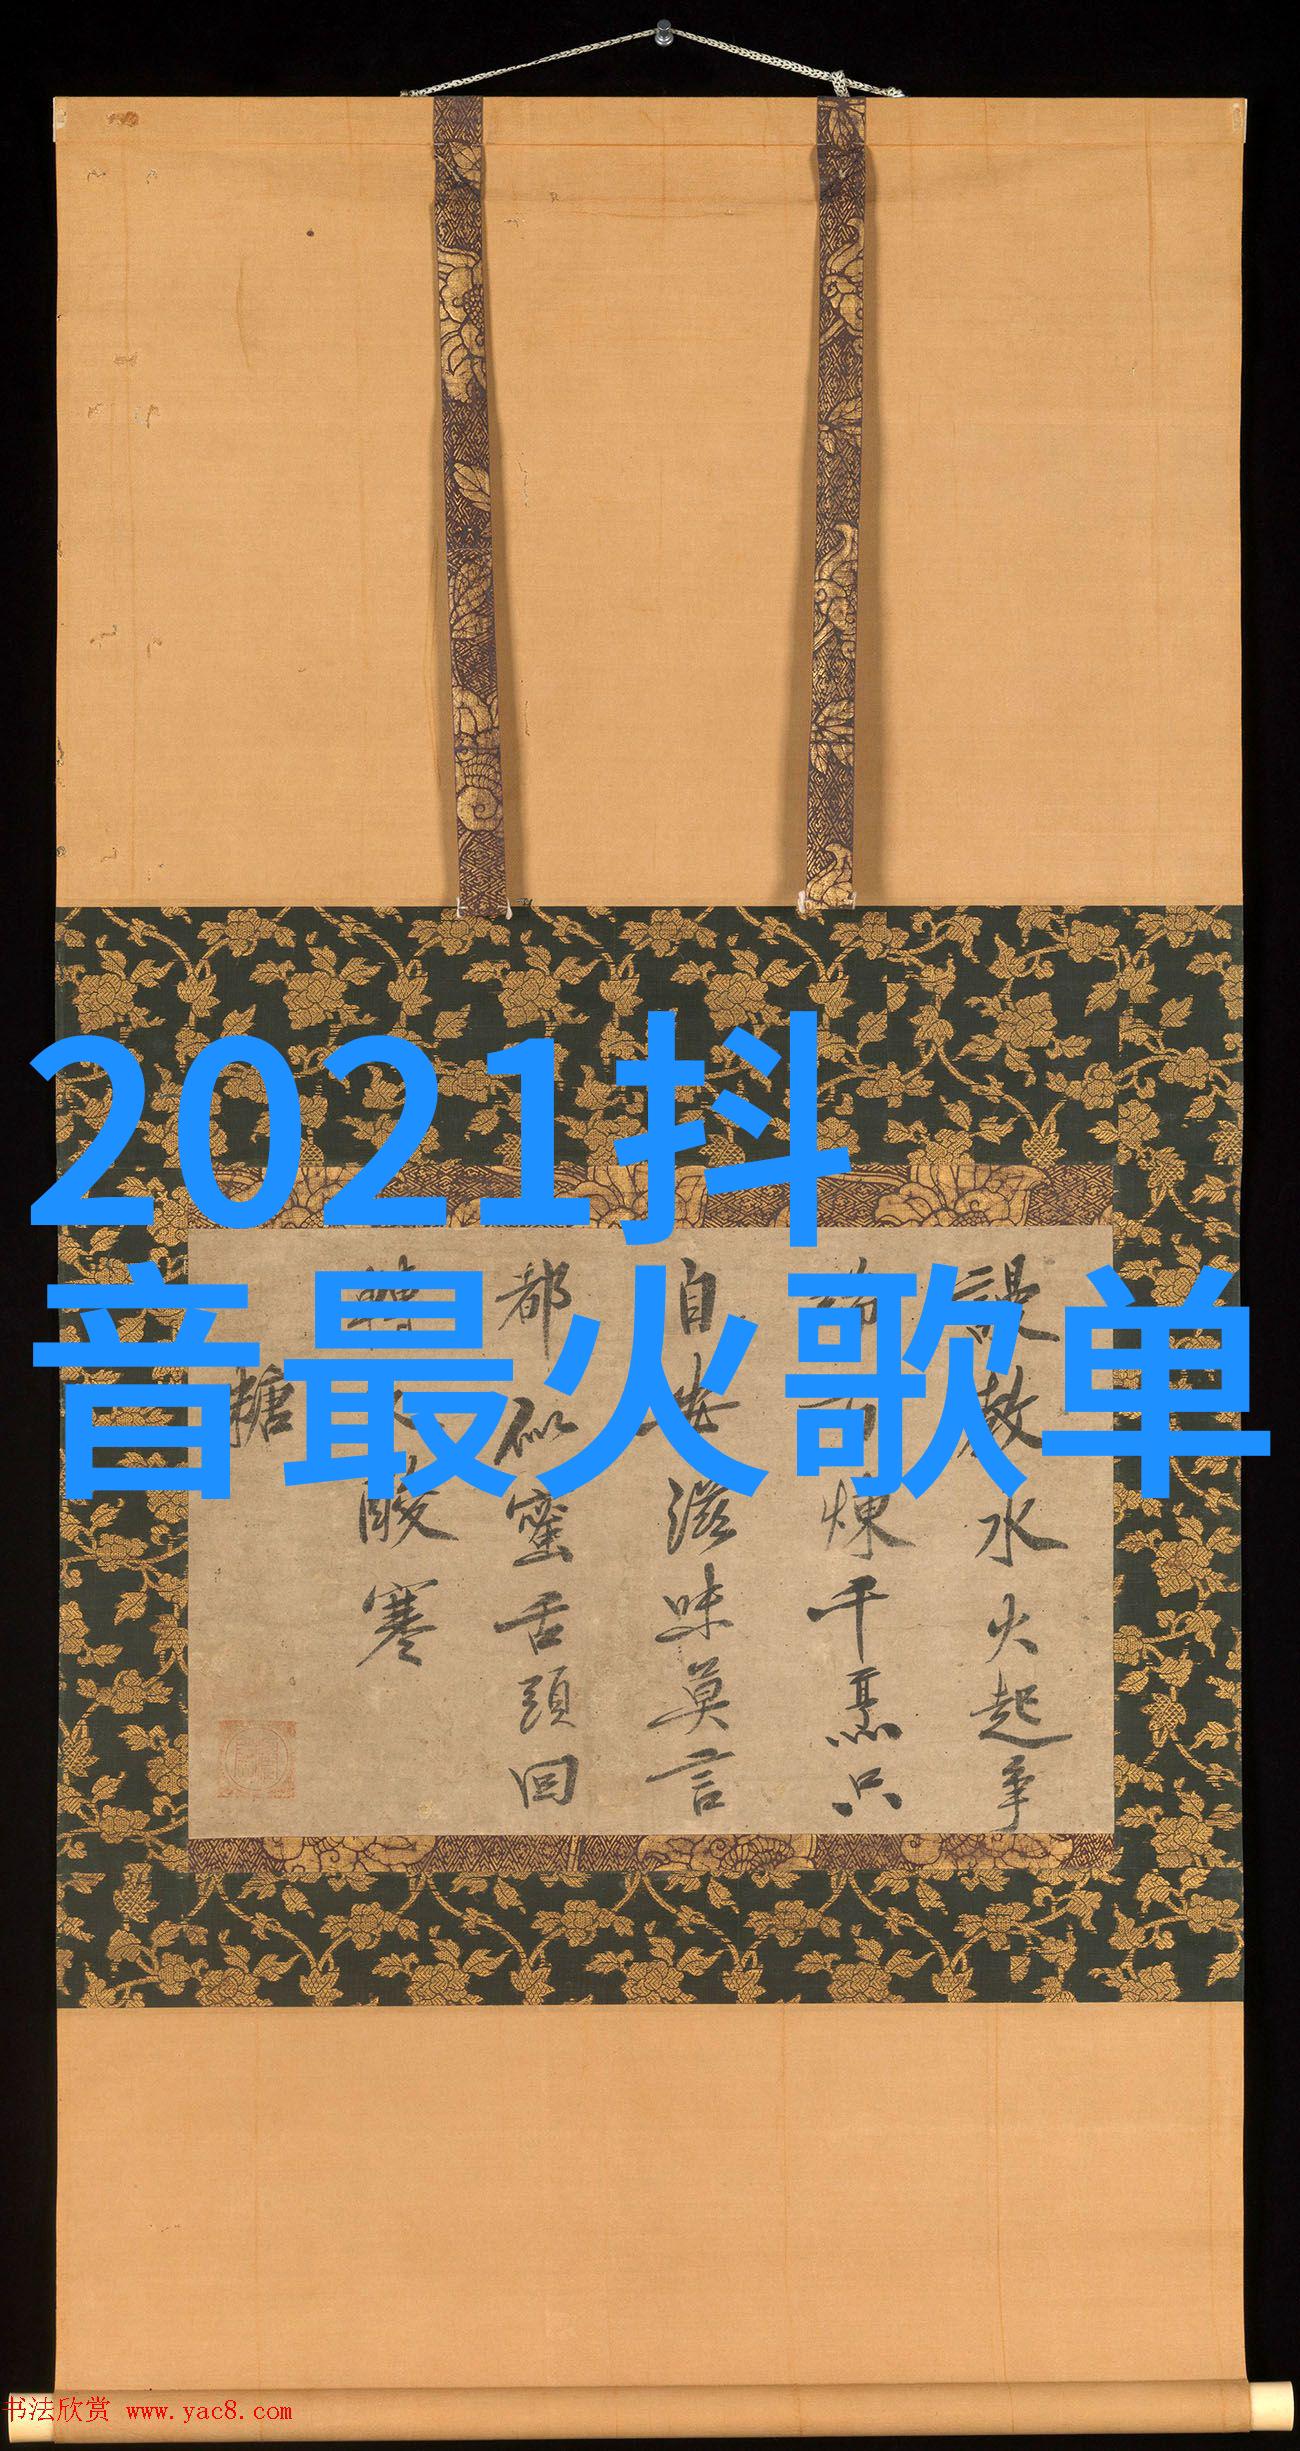 2021抖
音最火歌单
謾教水火起争
煉千烹只
自滋味莫言
都似蜜舌頭回
轉酸寒
糖
书法欣赏 www.yac8.com